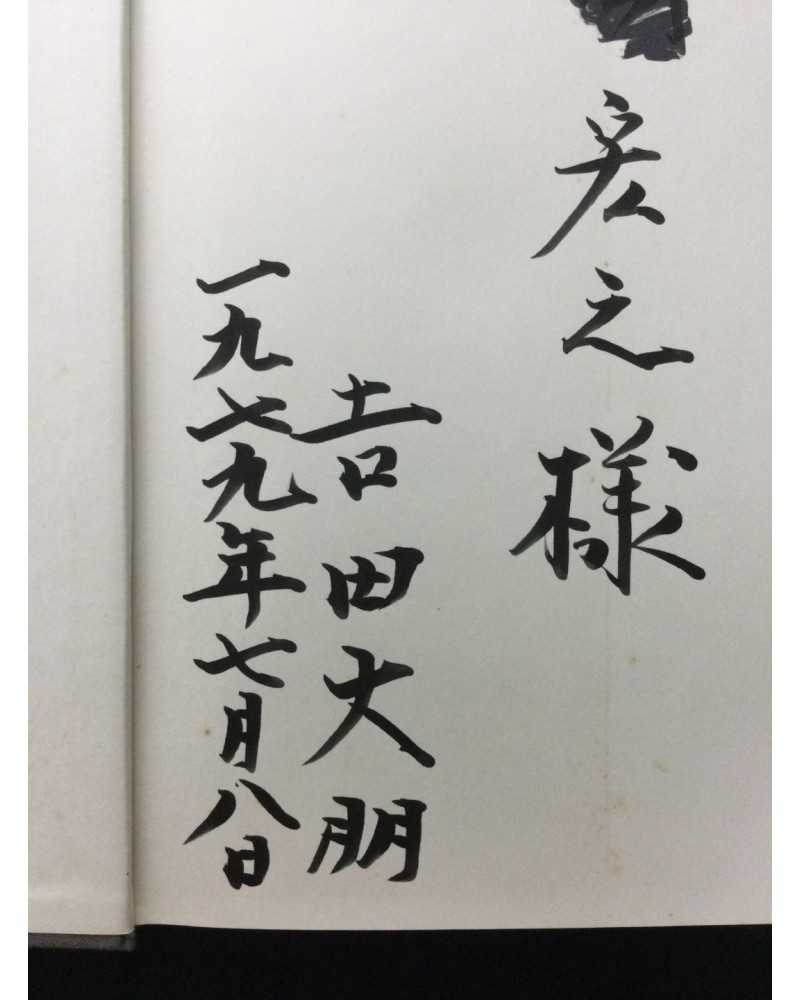 宏之様
吉田大朋
一九七九年七月八日